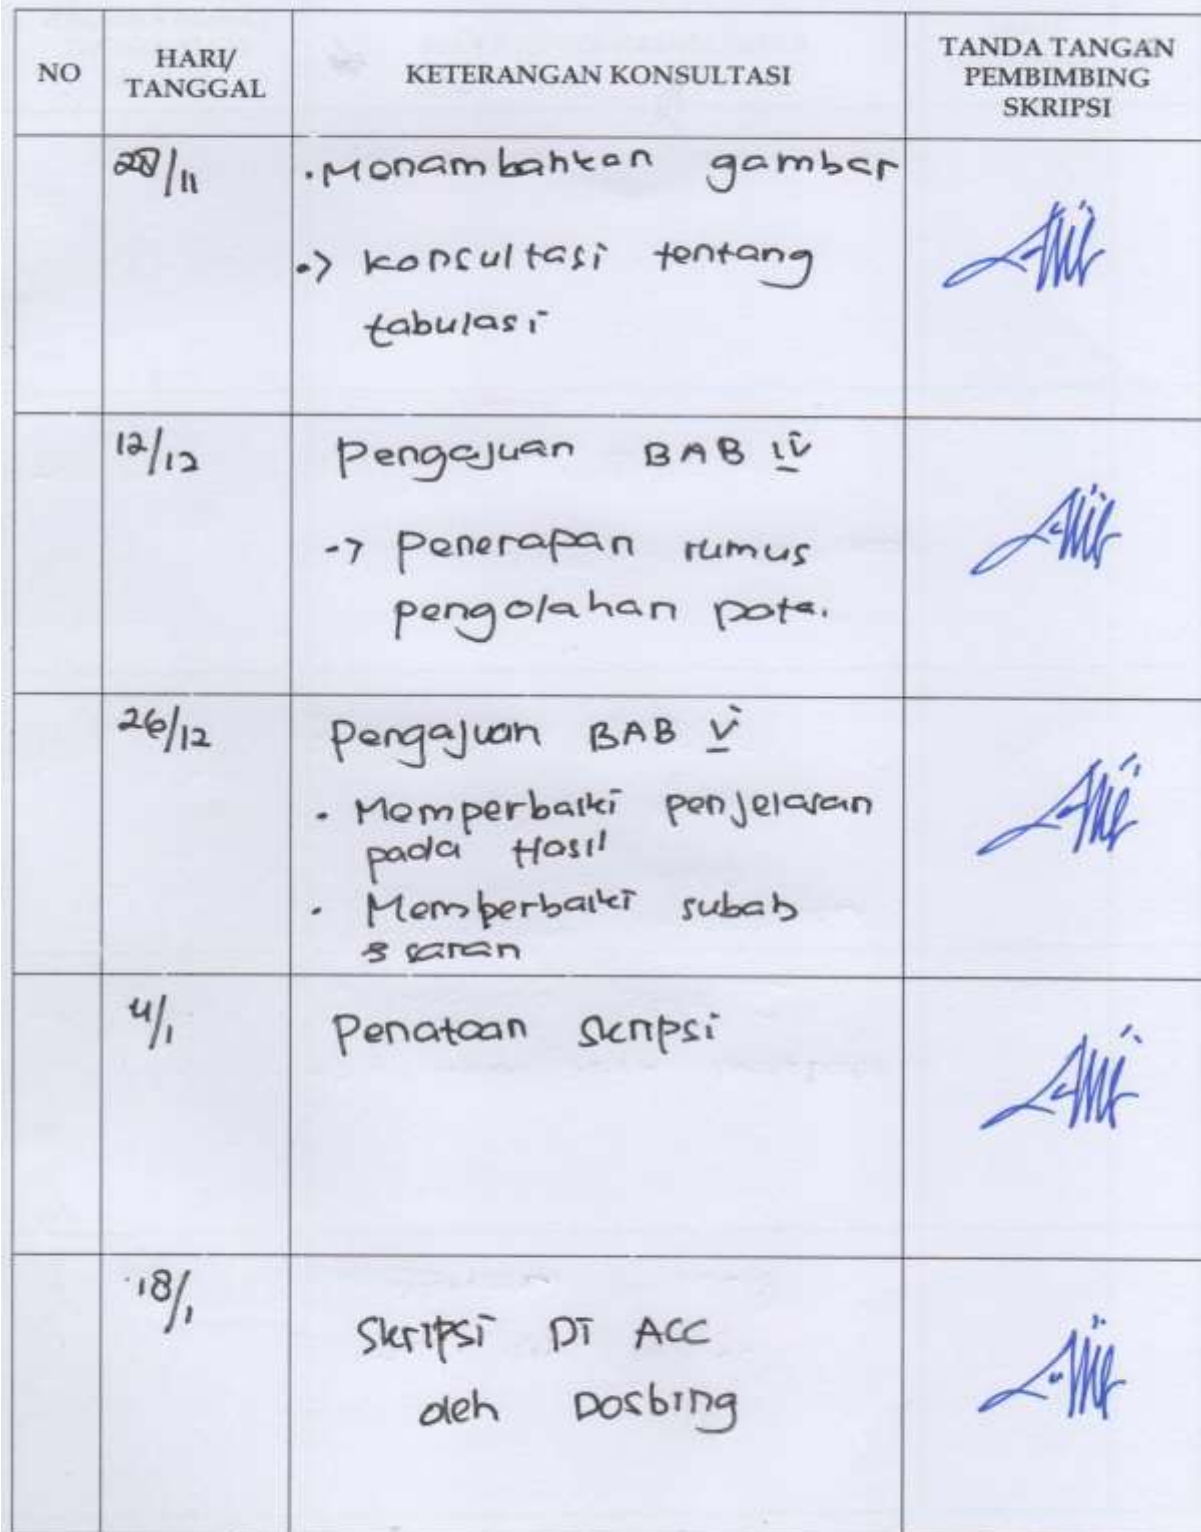 NO
HARI/
TANGGAL
KETERANGAN KONSULTASI
TANDA TANGAN
PEMBIMBING
SKRIPSI
28/11
• Menambahkan gambar
-> konsultasi tentang
tabulasi
12/12
Pengajuan BAB IV
-> Penerapan rumus
pengolahan Data.
26/12
Pengajuan BAB V
• Memperbaiki penjelasan
pada Hasil
• Memperbaiki subab
saran
4/1
Penataan Skripsi
18/1
Skripsi Di ACC
oleh Dosbing